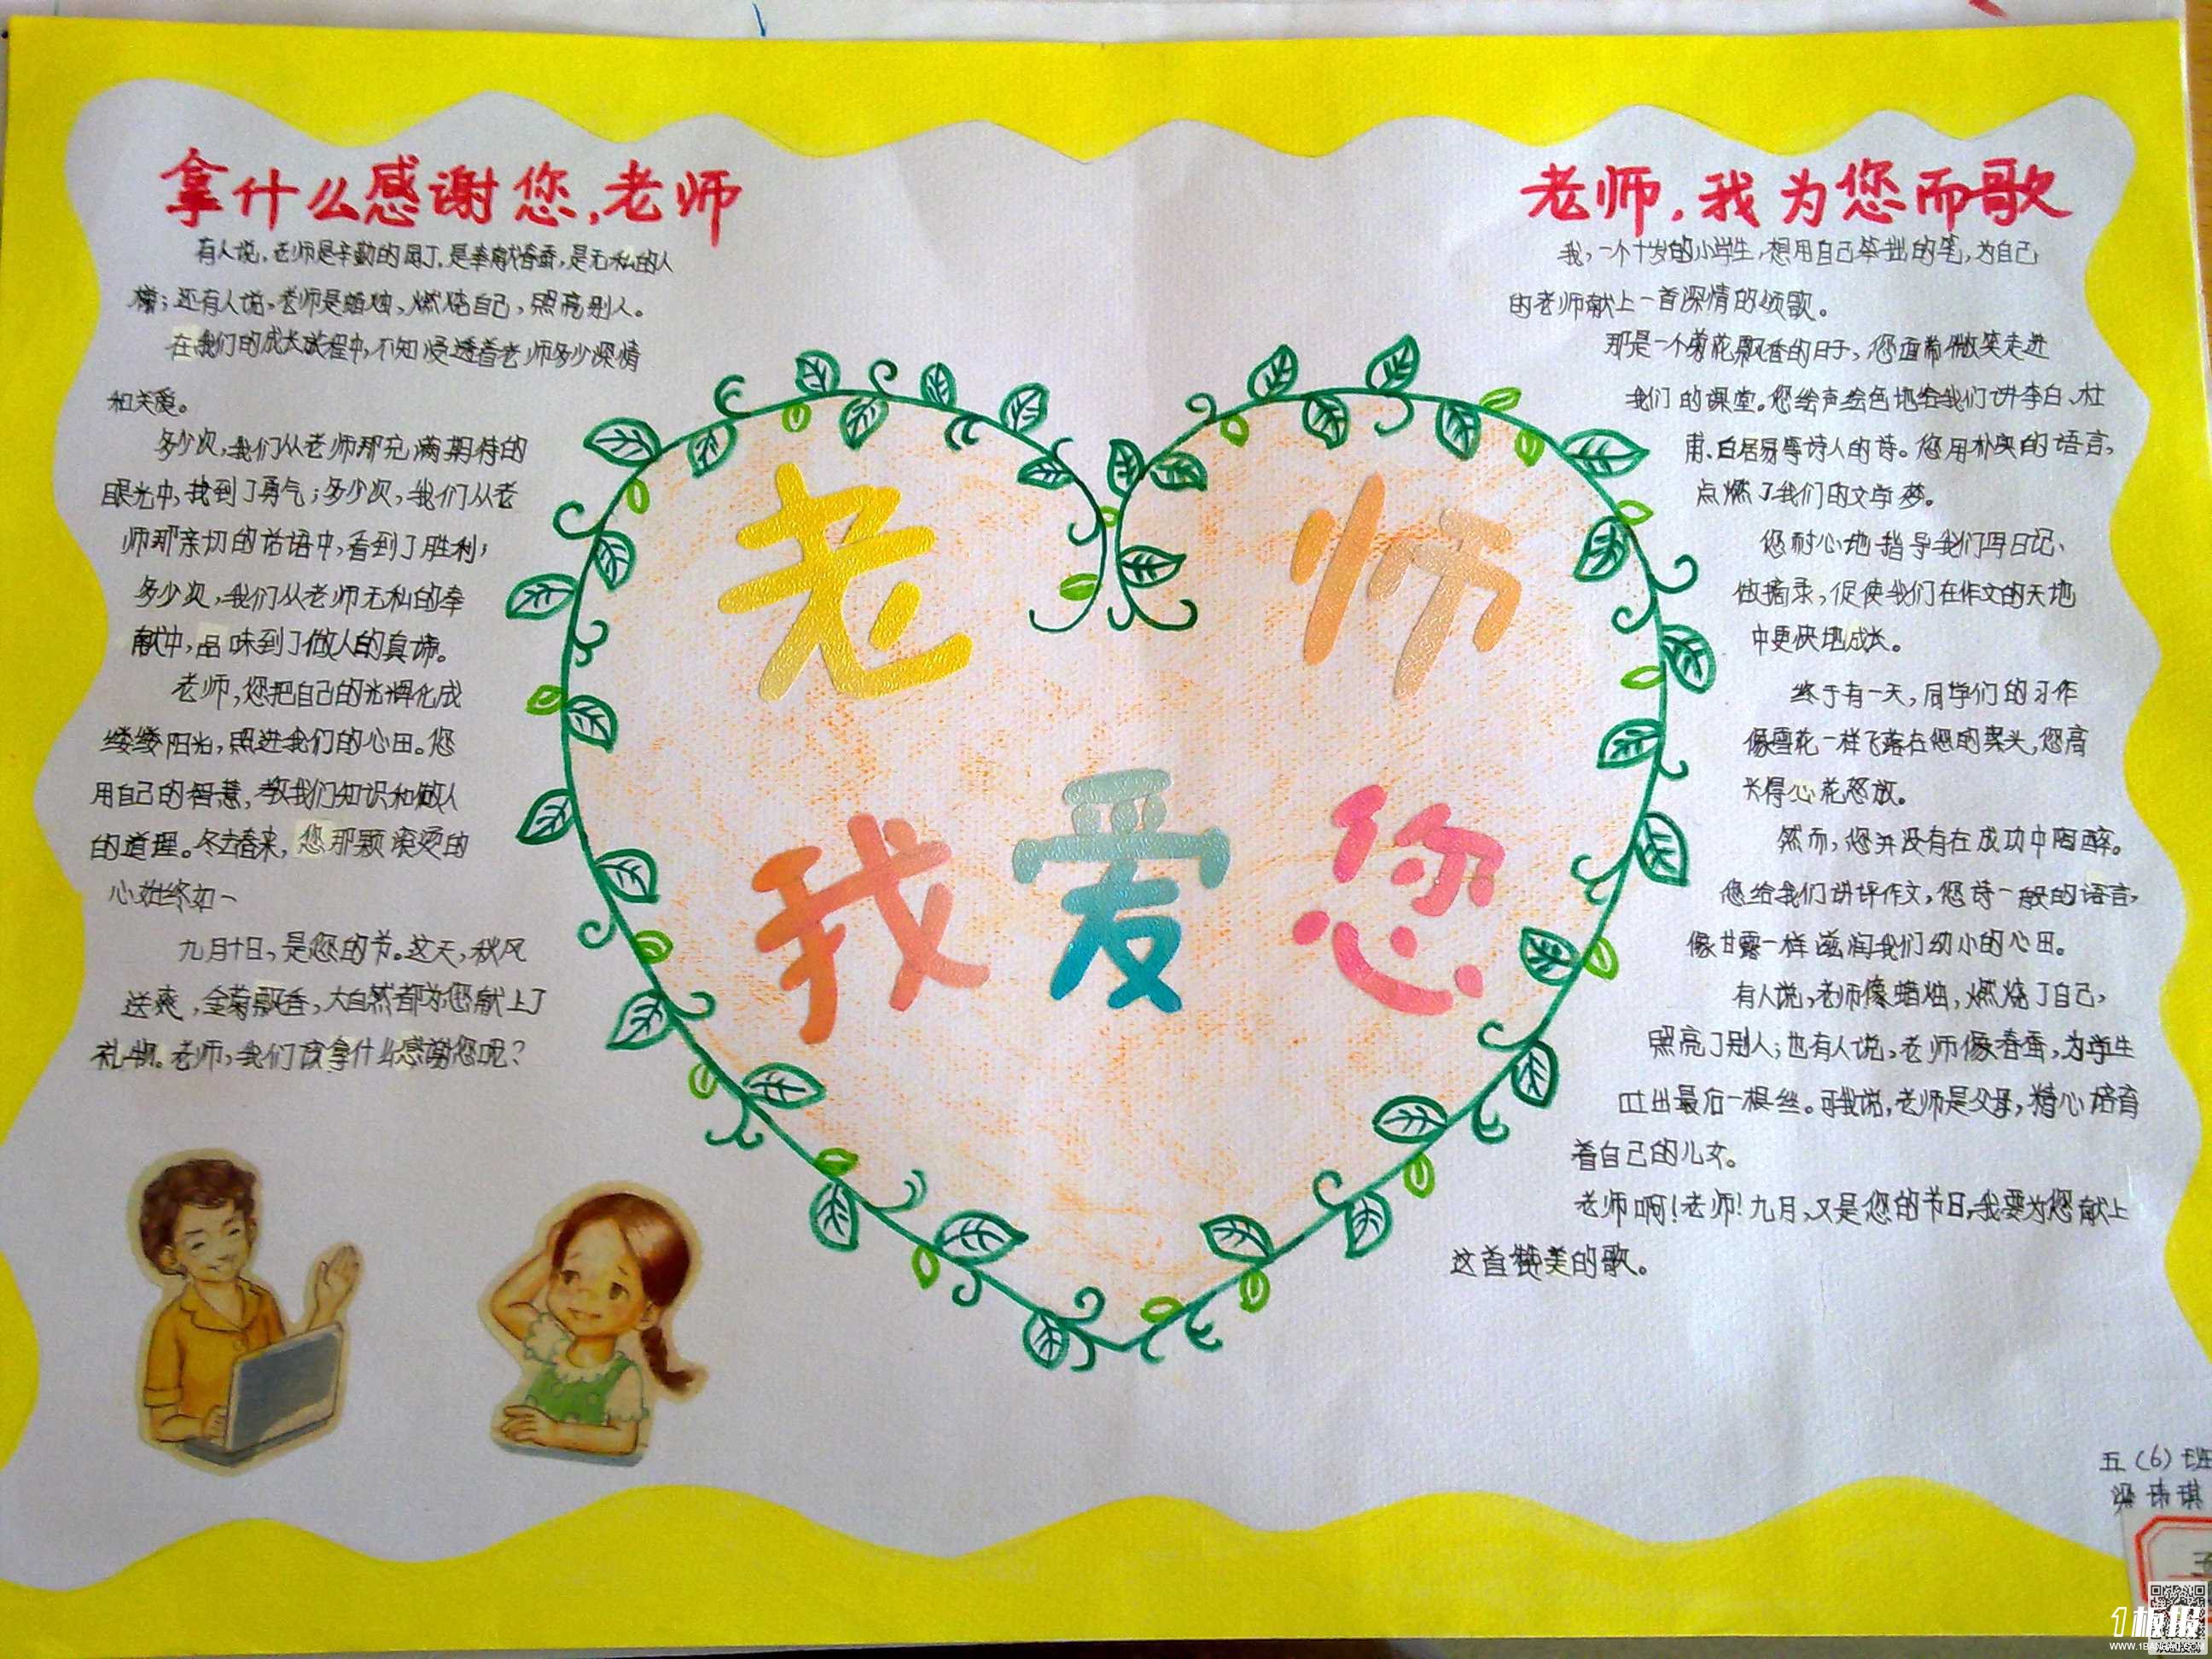 拿什么感谢您,老师
有人说,老师是辛勤的园丁,是奉献春蚕,是无私的人
梯;还有人说,老师是蜡烛,燃烧自己,照亮别人。
在我们的成长旅程中,不知浸透着老师多少深情
和关爱。
多少次,我们从老师那充满期待的
眼光中,找到了勇气;多少次,我们从老
师那亲切的话语中,看到了胜利;
多少次,我们从老师无私的奉
献中,品味到了做人的真谛。
老师,您把自己的光辉化成
缕缕阳光,照进我们的心田。您
用自己的智慧,教我们知识和做人
的道理。冬去春来,您那颗滚烫的
心始终如一
九月十日,是您的节。这天,秋风
送爽,金菊飘香,大自然都为您献上了
礼物。老师,我们该拿什么感谢您呢?
老师
我爱您
老师,我为您而歌
我,一个十岁的小学生,想用自己笨拙的笔,为自己
的老师献上一首深情的颂歌。
那是一个菊花飘香的日子,您面带微笑走进
我们的课堂。您绘声绘色地给我们讲李白、杜
甫、白居易等诗人的诗。您用朴实的语言,
点燃了我们的文学梦。
您耐心地指导我们写日记、
做摘录,促使我们在作文的天地
中更快地成长。
终于有一天,同学们的习作
像雪花一样飞落在您的案头,您高
兴得心花怒放。
然而,您并没有在成功中陶醉。
您给我们讲评作文,您诗一般的语言,
像甘露一样滋润我们幼小的心田。
有人说,老师像蜡烛,燃烧了自己,
照亮了别人;也有人说,老师像春蚕,为学生
吐出最后一根丝。可我说,老师是父母,精心培育
着自己的儿女。
老师啊!老师!九月,又是您的节日,我要为您献上
这首赞美的歌。
五(6)班
1板报
WWW.1BANBAO.COM